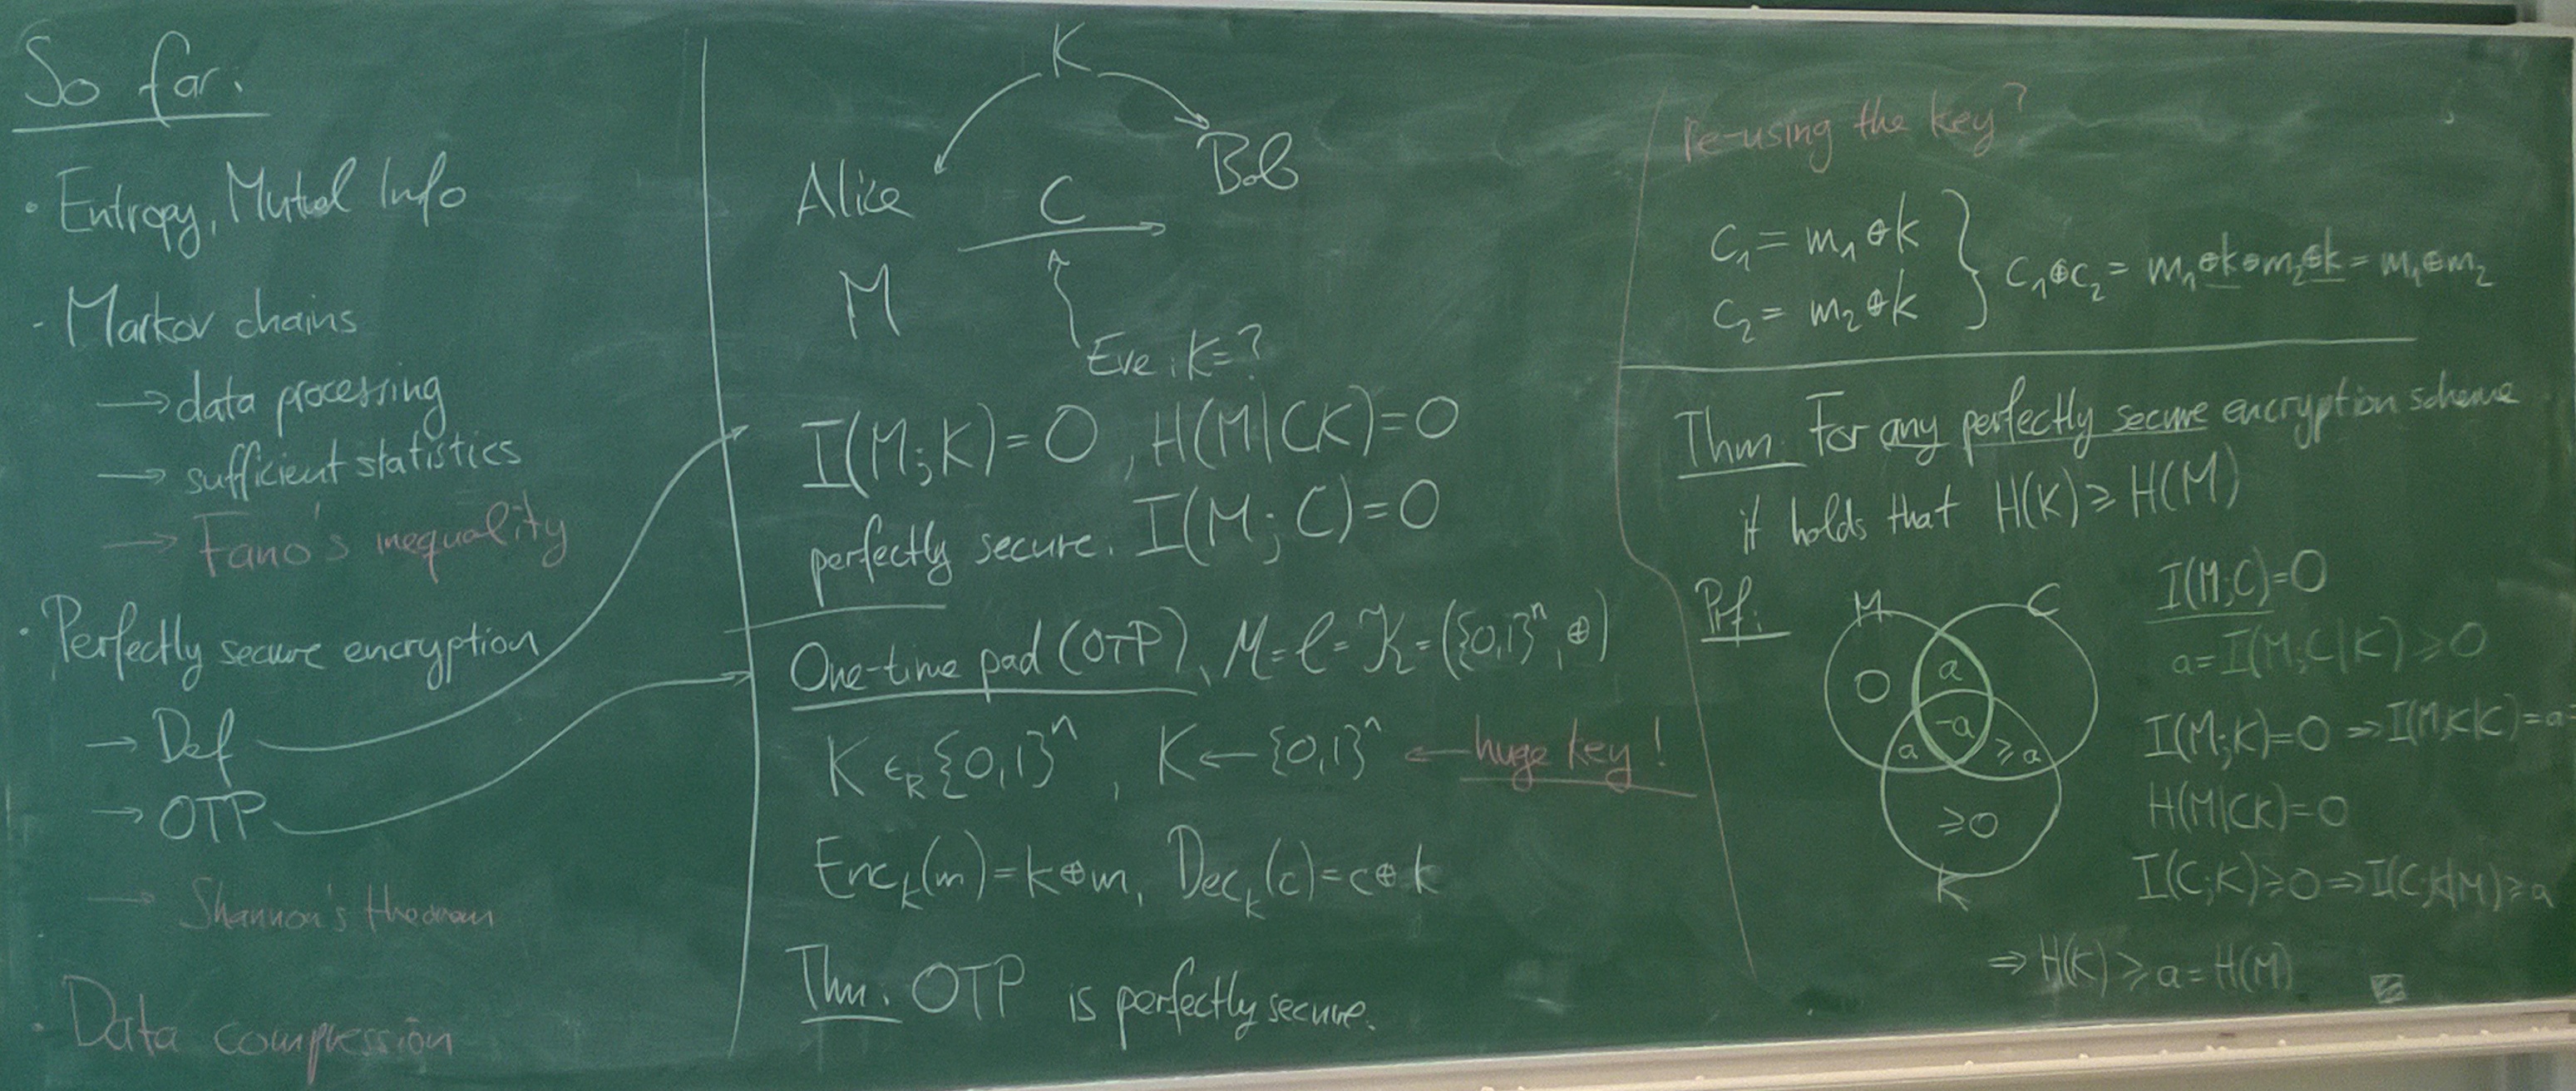 So far:
· Entropy, Mutual Info
- Markov chains
→ data processing
→ sufficient statistics
→ Fano's inequality
· Perfectly secure encryption
→ Def
→ OTP
→ Shannon's theorem
· Data compression
K
Alice
Bob
C
M
Eve: K=?
I(M;K)=0, H(M|CK)=0
perfectly secure. I(M;C)=0
One-time pad (OTP), M=C=K=({0,1}ⁿ,⊕)
K ∈_R {0,1}ⁿ, K ← {0,1}ⁿ ← huge key!
Enc_k(m)=k⊕m, Dec_k(c)=c⊕k
Thm. OTP is perfectly secure.
Re-using the key?
C₁ = m₁⊕k
C₂ = m₂⊕k
} C₁⊕C₂ = m₁⊕k⊕m₂⊕k = m₁⊕m₂
Thm. For any perfectly secure encryption scheme
it holds that H(K) ≥ H(M)
Prf:
M
C
0
a
-a
a
≥a
≥0
K
I(M;C)=0
a=I(M;C|K) ≥ 0
I(M;K)=0 ⇒ I(M;K|C)=a
H(M|CK)=0
I(C;K)≥0 ⇒ I(C;K|M)≥a
⇒ H(K) ≥ a = H(M)